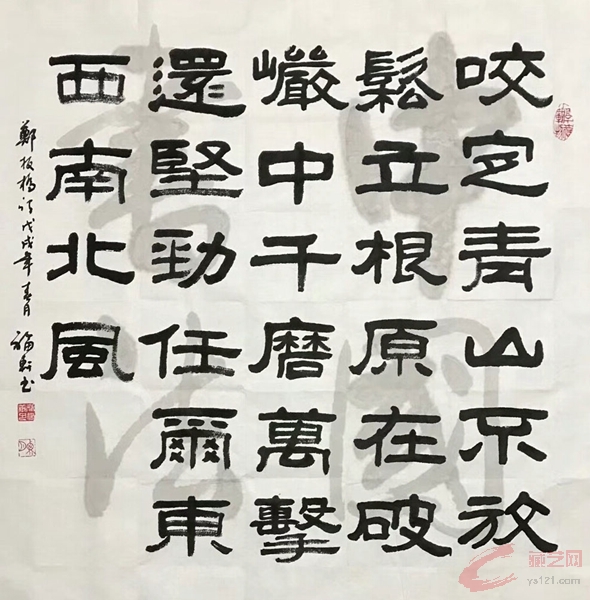 咬定青山不放
鬆立根原在破
巖中千磨萬擊
還堅勁任爾東
西南北風
鄭板橋詩戊戌年春月
中國
書法
藏艺网
ys121.com